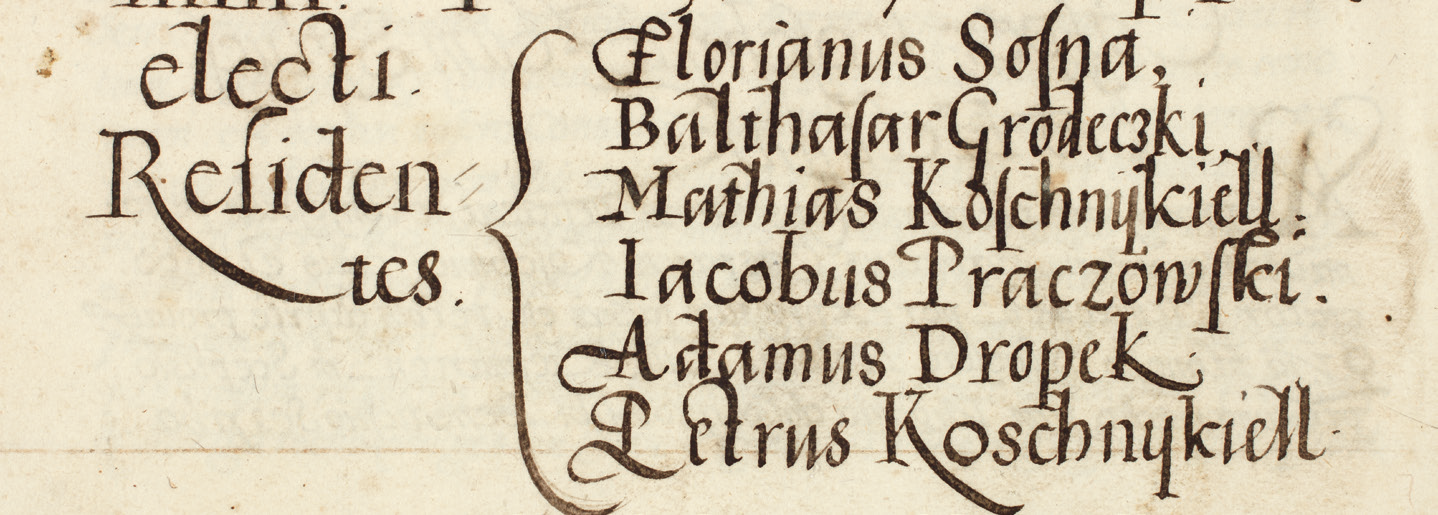 electi.
Reſiden
tes.
Florianus Soſna,
Balthaſar Grodeczki,
Mathias Koſchnÿkiell.
Iacobus Praczowſki.
Adamus Dropek.
Petrus Koschnÿkiell.